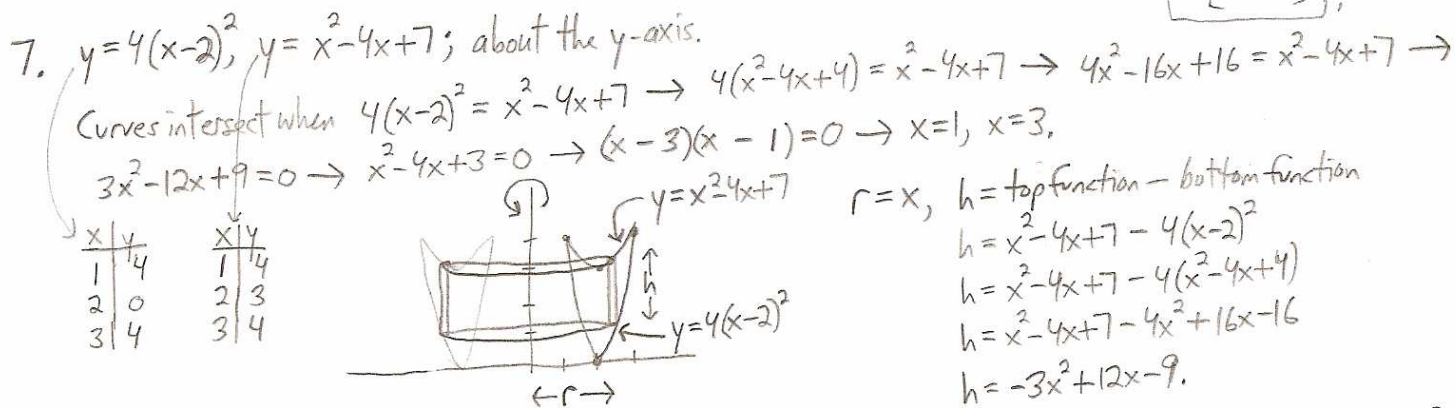 7. y=4(x-2)², y=x²-4x+7; about the y-axis.
Curves intersect when 4(x-2)²=x²-4x+7 → 4(x²-4x+4)=x²-4x+7 → 4x²-16x+16=x²-4x+7 →
3x²-12x+9=0 → x²-4x+3=0 → (x-3)(x-1)=0 → x=1, x=3.
x | y
1 | 4
2 | 0
3 | 4
x | y
1 | 4
2 | 3
3 | 4
y=x²-4x+7
h
y=4(x-2)²
←r→
r=x, h=top function - bottom function
h=x²-4x+7-4(x-2)²
h=x²-4x+7-4(x²-4x+4)
h=x²-4x+7-4x²+16x-16
h=-3x²+12x-9.